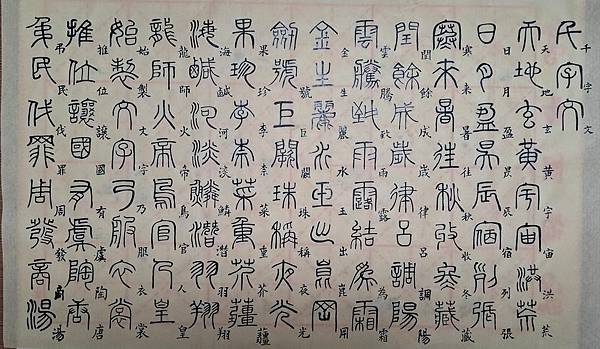 千字文
天地玄黃宇宙洪荒
日月盈昃辰宿列張
寒來暑往秋收冬藏
閏餘成歲律呂調陽
雲騰致雨露結為霜
金生麗水玉出崑岡
劍號巨闕珠稱夜光
果珍李柰菜重芥薑
海鹹河淡鱗潛羽翔
龍師火帝鳥官人皇
始製文字乃服衣裳
推位讓國有虞陶唐
弔民伐罪周發商湯